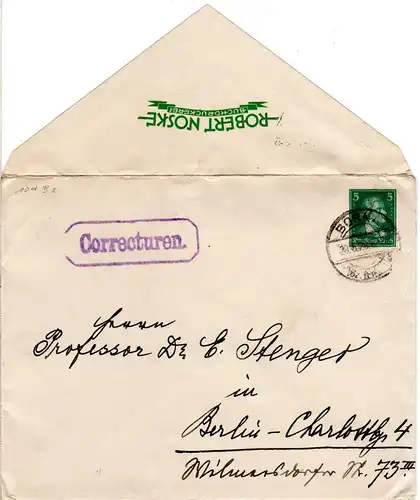 ROBERT NOSKE
BUCHDRUCKEREI
Correcturen.
5 5
BONN
Herrn
Professor Dr E. Stenger
in
Berlin-Charlottbg 4
Wilmersdorfer St. 73 III